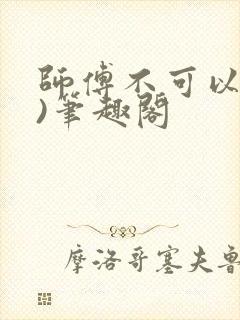 師傅不可以
)筆趣閣
摩洛哥塞夫魯